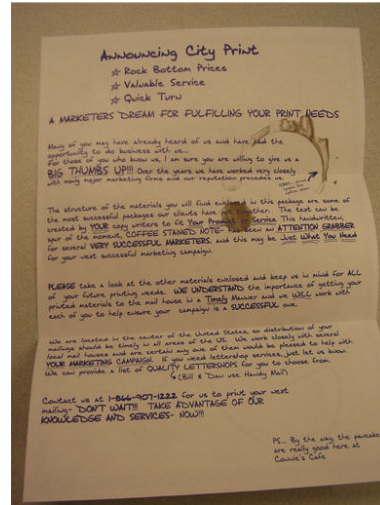 Announcing City Print
☆ Rock Bottom Prices
☆ Valuable Service
☆ Quick Turn
A MARKETERS' DREAM FOR FULFILLING YOUR PRINT NEEDS
Many of you may have already heard of us and have had the
opportunity to do business with us...
For those of you who know us, I am sure you are willing to give us a
BIG THUMBS UP!!! Over the years we have worked very closely
with many major marketing firms and our reputation precedes us.
The structure of the materials you will find enclosed in this package are some of
the most successful packages our clients have put together. The text can be
created by YOUR copy writers to fit Your Product or Service. This handwritten,
spur of the moment, COFFEE STAINED NOTE- has been an ATTENTION GRABBER
for several VERY SUCCESSFUL MARKETERS, and this may be Just What You Need
for your next successful marketing campaign.
PLEASE take a look at the other materials enclosed and keep us in mind for ALL
of your future printing needs. WE UNDERSTAND the importance of getting your
printed materials to the mail house in a Timely Manner and we WILL work with
each of you to help ensure your campaign is a SUCCESSFUL one.
We are located in the center of the United States, so distribution of your
mailings should be timely in all areas of the US. We work closely with several
local mail houses and are certain any one of them would be pleased to help with
YOUR MARKETING CAMPAIGN. If you need lettershop services, just let us know.
We can provide a list of QUALITY LETTERSHOPS for you to choose from.
(Bill & Dan use Handy Mail)
Contact us at 1-866-907-1222 for us to print your next
mailing- DON'T WAIT!!! TAKE ADVANTAGE OF OUR
KNOWLEDGE AND SERVICES- NOW!!!
PS... By the way, the pancakes
are really good here at
Connie's Cafe